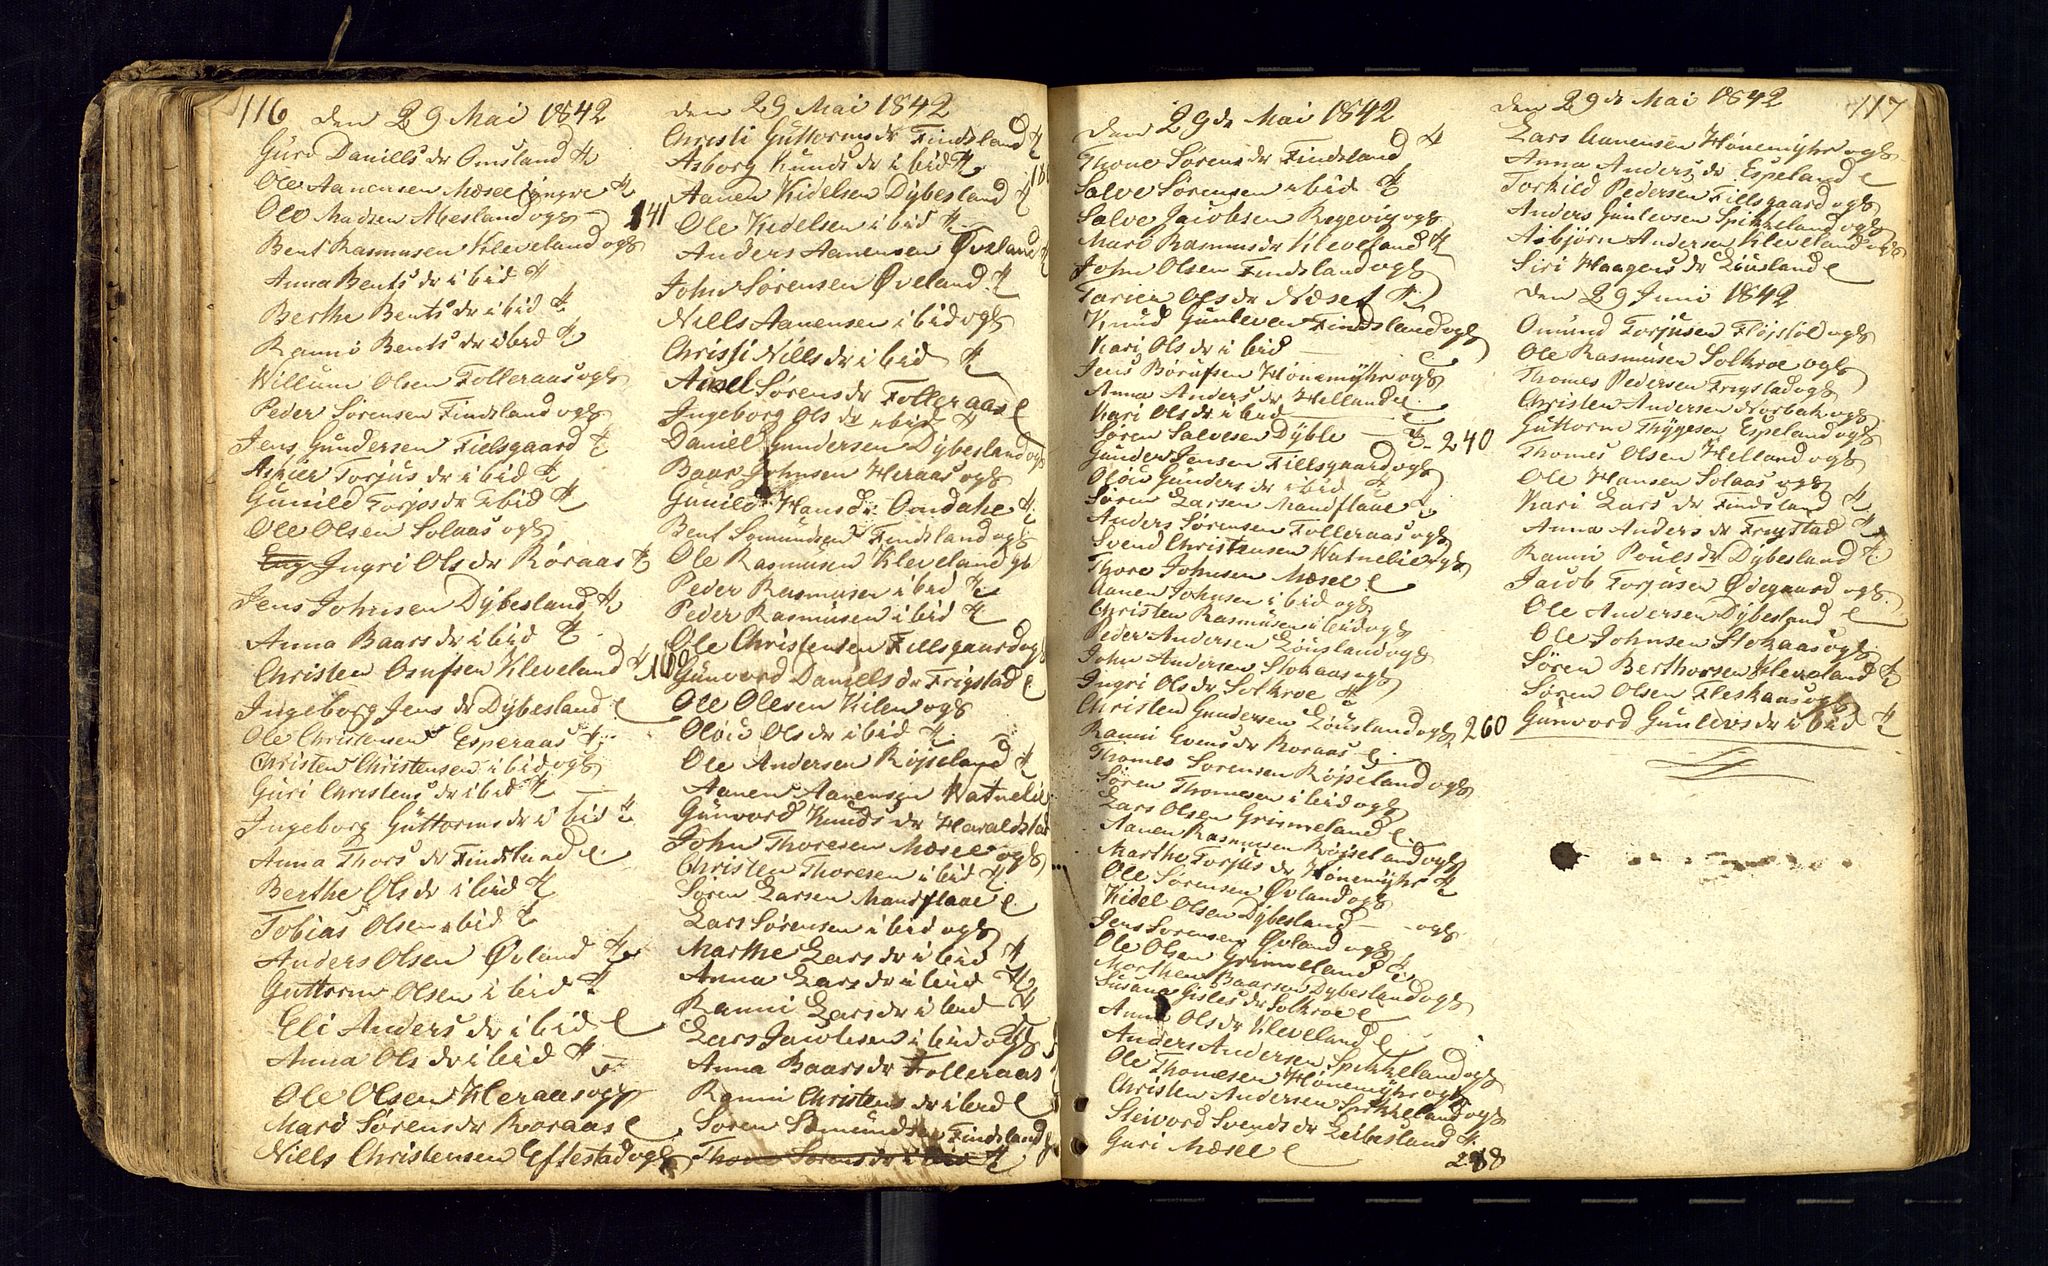 116 den 29 Mai 1842
Guri Daniels dr Omsland
Ole Aanensen Mæsel Yngre
Ole Madsen Abesland og 141
Bent Rasmusen Kleveland og
Anna Bents dr ibid
Berthe Bents dr ibid
Ranni Bents dr ibid
Willum Olsen Folleraas og
Peder Sørensen Findsland og
Jens Gundersen Fielsgaard
Torjus dr ibid
Gunild Torjus dr ibid
Ole Olsen Solaas og
Ingri Ols dr Røraas
Jens Johnsen Dÿbesland
Anna Baars dr ibid
Christen Osufsen Kleveland 160
Ingeborg Jens dr Dÿbesland
Ole Christensen Esperaas
Christen Christensen ibid og
Guri Christens dr ibid
Ingeborg Güttorms dr ibid
Anna Thors dr Findsland
Berthe Ols dr ibid
Tobias Olsen ibid
Anders Olsen Øvland
Guttorm Olsen ibid
Eli Anders dr ibid
Anna Ols dr ibid
Ole Olsen Heraas og
Mari Sørens dr Roraas
Niels Christensen Eftestad og
den 29 Mai 1842
Christi Guttorms dr Findsland
Asborg Knuds dr ibid
Aanen Kidelsen Dÿbesland
Ole Kidelsen ibid
Anders Aanensen Øveland
John Sørensen Øveland
Niels Aanensen ibid og
Christi Niels dr ibid
Axel Sørens dr Folleraas
Ingeborg Ols dr ibid
Daniel Gundersen Dÿbesland og
Baar Johnsen Heraas og
Gunild Hans dr Omdahl
Bent Somundsen Findsland og
Ole Rasmusen Kleveland og
Peder Rasmusen ibid
Peder Rasmusen ibid
Ole Christensen Fielsgaard og
Gunvord Daniels dr Frigstad
Ole Olesen Kilen og
Oløu Ols dr ibid
Ole Andersen Røjseland
Aanen Aanensen Watnelie
Gunvord Knuds dr Haraldstad
John Thoresen Mæsel og
Christen Thoresen ibid
Søren Larsen Mandflaae
Lars Sørensen ibid og
Marthe Lars dr ibid
Anna Lars dr ibid
Ranni Lars dr ibid
Lars Jacobsen ibid og
Anna Baars dr Folleraas
Ranni Christens dr ibid
Søren Somundsen Findsland
Thone Sørens dr ibid
Den 29de Mai 1842
Thone Sørens dr Findsland
Salve Sørensen ibid
Salve Jacobsen Regevig og
Mari Rasmus dr Kleveland
John Olsen Findsland og
Tarjer Ols dr Næset
Knud Gunleven Findsland og
Kari Ols dr ibid
Jens Børufsen Hønemÿhr og
Anna Anders dr Helland
Kari Ols dr ibid
Søren Salvesen Dÿble 240
Gunder Jensen Fillsgaard og
Oløu Gunders dr ibid
Søren Larsen Mandflaae
Anders Sørensen Folleraas og
Svend Christensen Watnelie og
Thore Johnsen Mæsel
Aanen Johnsen ibid og
Christen Rasmusen ibid og
Peder Andersen Löusland og
John Andersen Stokaas og
Ingri Ols dr Solkroe
Christen Gundersen Löusland og 260
Ranni Evens dr Roraas
Thomes Sorensen Røjseland og
Søren Thomesen ibid og
Lars Olsen Grimmeland
Aanen Rasmusen Røjseland og
Marthe Torjus dr Hønemÿhr
Ole Sørensen Øvland og
Kidel Olsen Dÿbesland og
Jens Sorensen Øvland og
Ole Olsen Grimmeland
Morthen Baarsen Dÿbesland og
Susana Gisles dr Solkroe
Anna Ols dr Kleveland
Anders Andersen Spikkeland og
Ole Thomesen Hønemÿhr og
Christen Andersen Spikkeland og
Steivord Svends dr Leibesland
Guri Mæsel
288
den 29de Mai 1842 117
Lars Aanensen Hønemÿhr og
Anna Anders dr Espeland
Torkild Pedersen Fillsgaard og
Anders Gunlevsen Spikkeland og
Asbjørn Andersen Kleveland og
Siri Haagens dr Löusland
Den 29 Juni 1842
Omund Torjusen Fløjstøl og
Ole Rasmusen Solkroe og
Thomes Pedersen Frigstad og
Christen Andersen Norbak og
Guttorm Thÿgesen Espeland og
Thomes Olsen Helland og
Ole Hansen Solaas og
Kari Lars dr Findsland
Anna Anders dr Frigstad
Ranni Pouls dr Dÿbesland
Jacob Torjusen Ødegaard og
Ole Andersen Dÿbesland
Ole Johnsen Stokaas og
Søren Berthorsen Kleveland
Søren Olsen Fleskaas og
Gunvord Gunlevs dr ibid